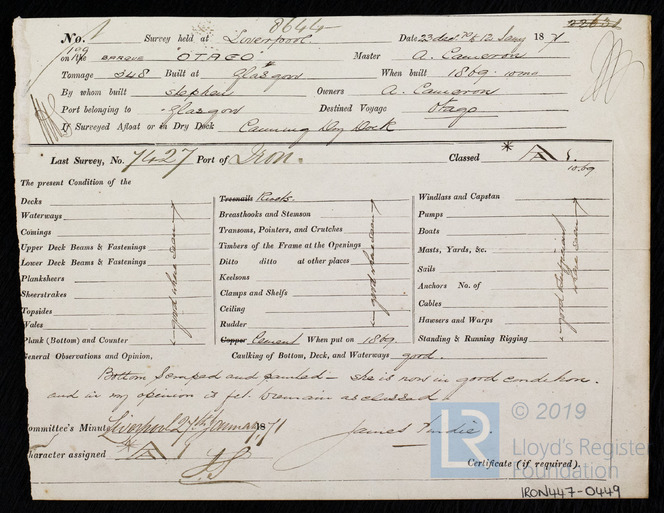 8644
No. 1 Survey held at Liverpool. Date, 23 dec. 70 to 12 Jany 1871
22631
on the BARQUE "OTAGO" Master A. Cameron
Tonnage 348 Built at Glasgow When built 1869. 10mo
By whom built Stephen Owners A. Cameron
Port belonging to Glasgow Destined Voyage Otago
If Surveyed Afloat or in Dry Dock Canning Dry Dock
Last Survey, No. 7427 Port of Iron. Classed * A 1.
10.69
The present Condition of the
Decks
Waterways
Comings
Upper Deck Beams & Fastenings
Lower Deck Beams & Fastenings
Planksheers
Sheerstrakes
Topsides
Wales
Plank (Bottom) and Counter
good where seen
Treenails Rivets.
Breasthooks and Stemson
Transoms, Pointers, and Crutches
Timbers of the Frame at the Openings
Ditto ditto at other places
Keelsons
Clamps and Shelfs
Ceiling
Rudder
Copper Cement When put on 1869.
good where seen
Windlass and Capstan
Pumps
Boats
Masts, Yards, &c.
Sails
Anchors No. of
Cables
Hawsers and Warps
Standing & Running Rigging
good & sufficient where seen
General Observations and Opinion, Caulking of Bottom, Deck, and Waterways good.
Bottom scraped and painted - she is now in good condition.
and in my opinion is fit to remain as classed
Committee's Minute Liverpool 27th January 1871
James Tindle.
Character assigned * A 1
Certificate (if required).
LR © 2019
Lloyd's Register
Foundation
IRON447-0449